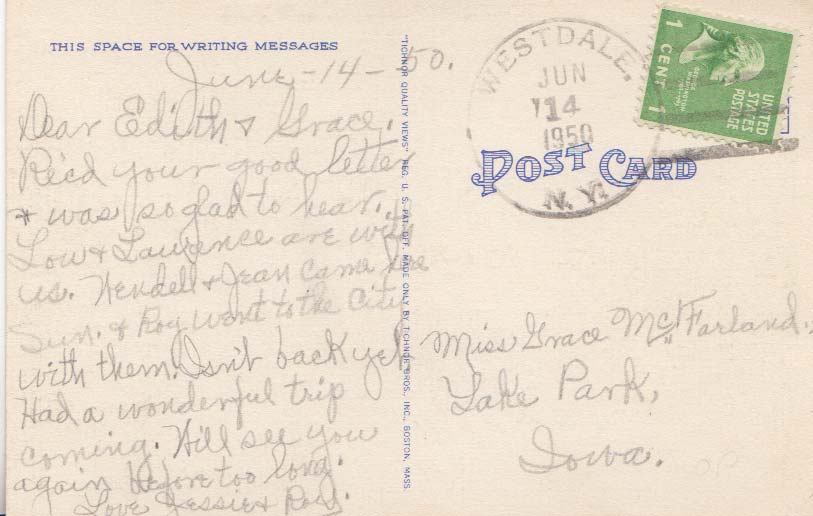 THIS SPACE FOR WRITING MESSAGES
June-14-50.
Dear Edith & Grace.
Rec'd your good letter
& was so glad to hear.
Low & Laurence are with
us. Wendell & Jean came here
Sun. & Roy went to the City
with them. Isn't back yet
Had a wonderful trip
coming. Will see you
again before too long.
Love Jessie & Roy.
"TICHNOR QUALITY VIEWS" REG. U. S. PAT. OFF. MADE ONLY BY TICHNOR BROS., INC., BOSTON, MASS.
WESTDALE,
JUN
14
1950
N. Y.
1 CENT 1
GEORGE WASHINGTON
UNITED STATES POSTAGE
POST CARD
Miss Grace McFarland.
Lake Park,
Iowa.